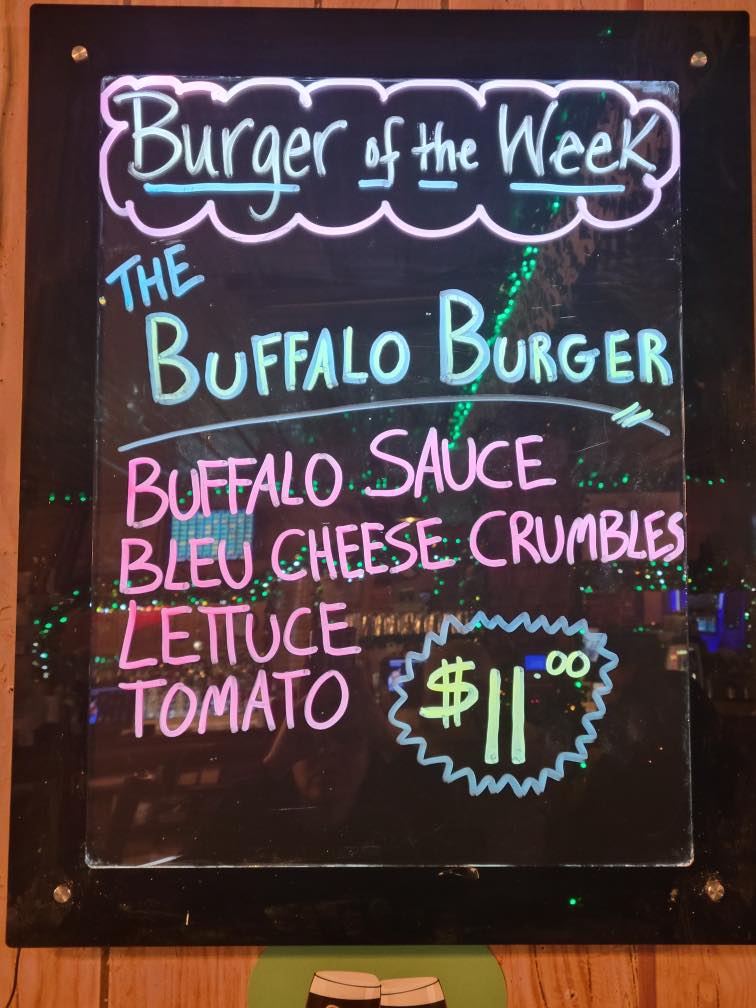 Burger of the Week
THE
BUFFALO BURGER
BUFFALO SAUCE
BLEU CHEESE CRUMBLES
LETTUCE
TOMATO
$11.00